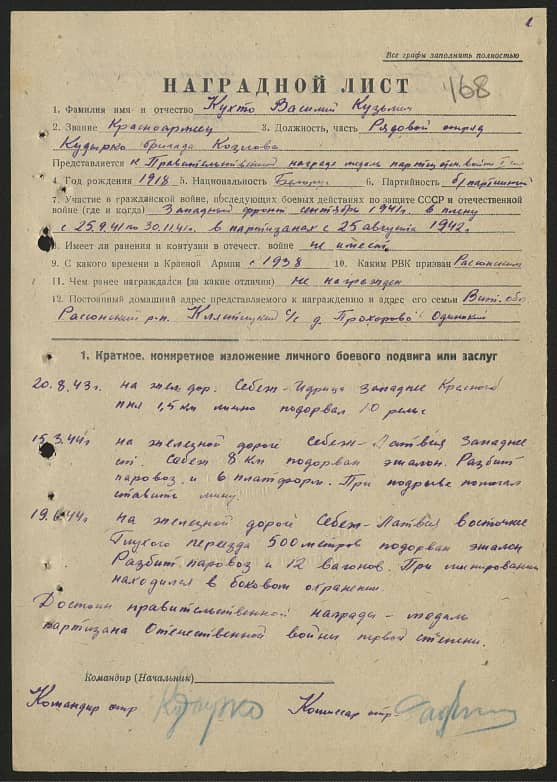 1
Все графы заполнять полностью
НАГРАДНОЙ ЛИСТ
168
1. Фамилия имя и отчество Кухто Василий Кузьмич
2. Звание Красноармеец 3. Должность, часть Рядовой отряд
Кудырко бригада Козлова
Представляется к Правительственной награде медаль партиз. отеч. войны I ст.
4. Год рождения 1918 5. Национальность Белорус 6. Партийность б/партийный
7. Участие в гражданской войне, последующих боевых действиях по защите СССР и отечественной
войне (где и когда) Западный фронт сентябрь 1941г. в плену
с 25.9.41 по 30.11.41г. в партизанах с 25 августа 1942г.
8. Имеет ли ранения и контузии в отечест. войне не имеет
9. С какого времени в Красной Армии с 1938 10. Каким РВК призван Расонским
11. Чем ранее награждался (за какие отличия) не награжден
12. Постоянный домашний адрес представляемого к награждению и адрес его семьи Вит. обл
Расонский р-н. Клястицкий с/с д. Прохорово Одинокий
1. Краткое, конкретное изложение личного боевого подвига или заслуг
20.8.43г. на жел. дор. Себеж-Идрица западнее Красного
пня 1,5 км лично подорвал 10 рельс
15.3.44г на железной дороге Себеж-Латвия западнее
ст. Себеж 8 км подорван эшалон. Разбит
паровоз и 6 платформ. При подрыве помогал
ставить мину
19.6.44г на железной дороге Себеж-Латвия восточнее
Глухого переезда 500 метров подорван эшалон
Разбит паровоз и 12 вагонов. При минировании
находился в боковом охранении.
Достоин правительственной награды - медаль
партизана Отечественной войны первой степени.
Командир (Начальник)
Командир отр Кудырко Комиссар отр